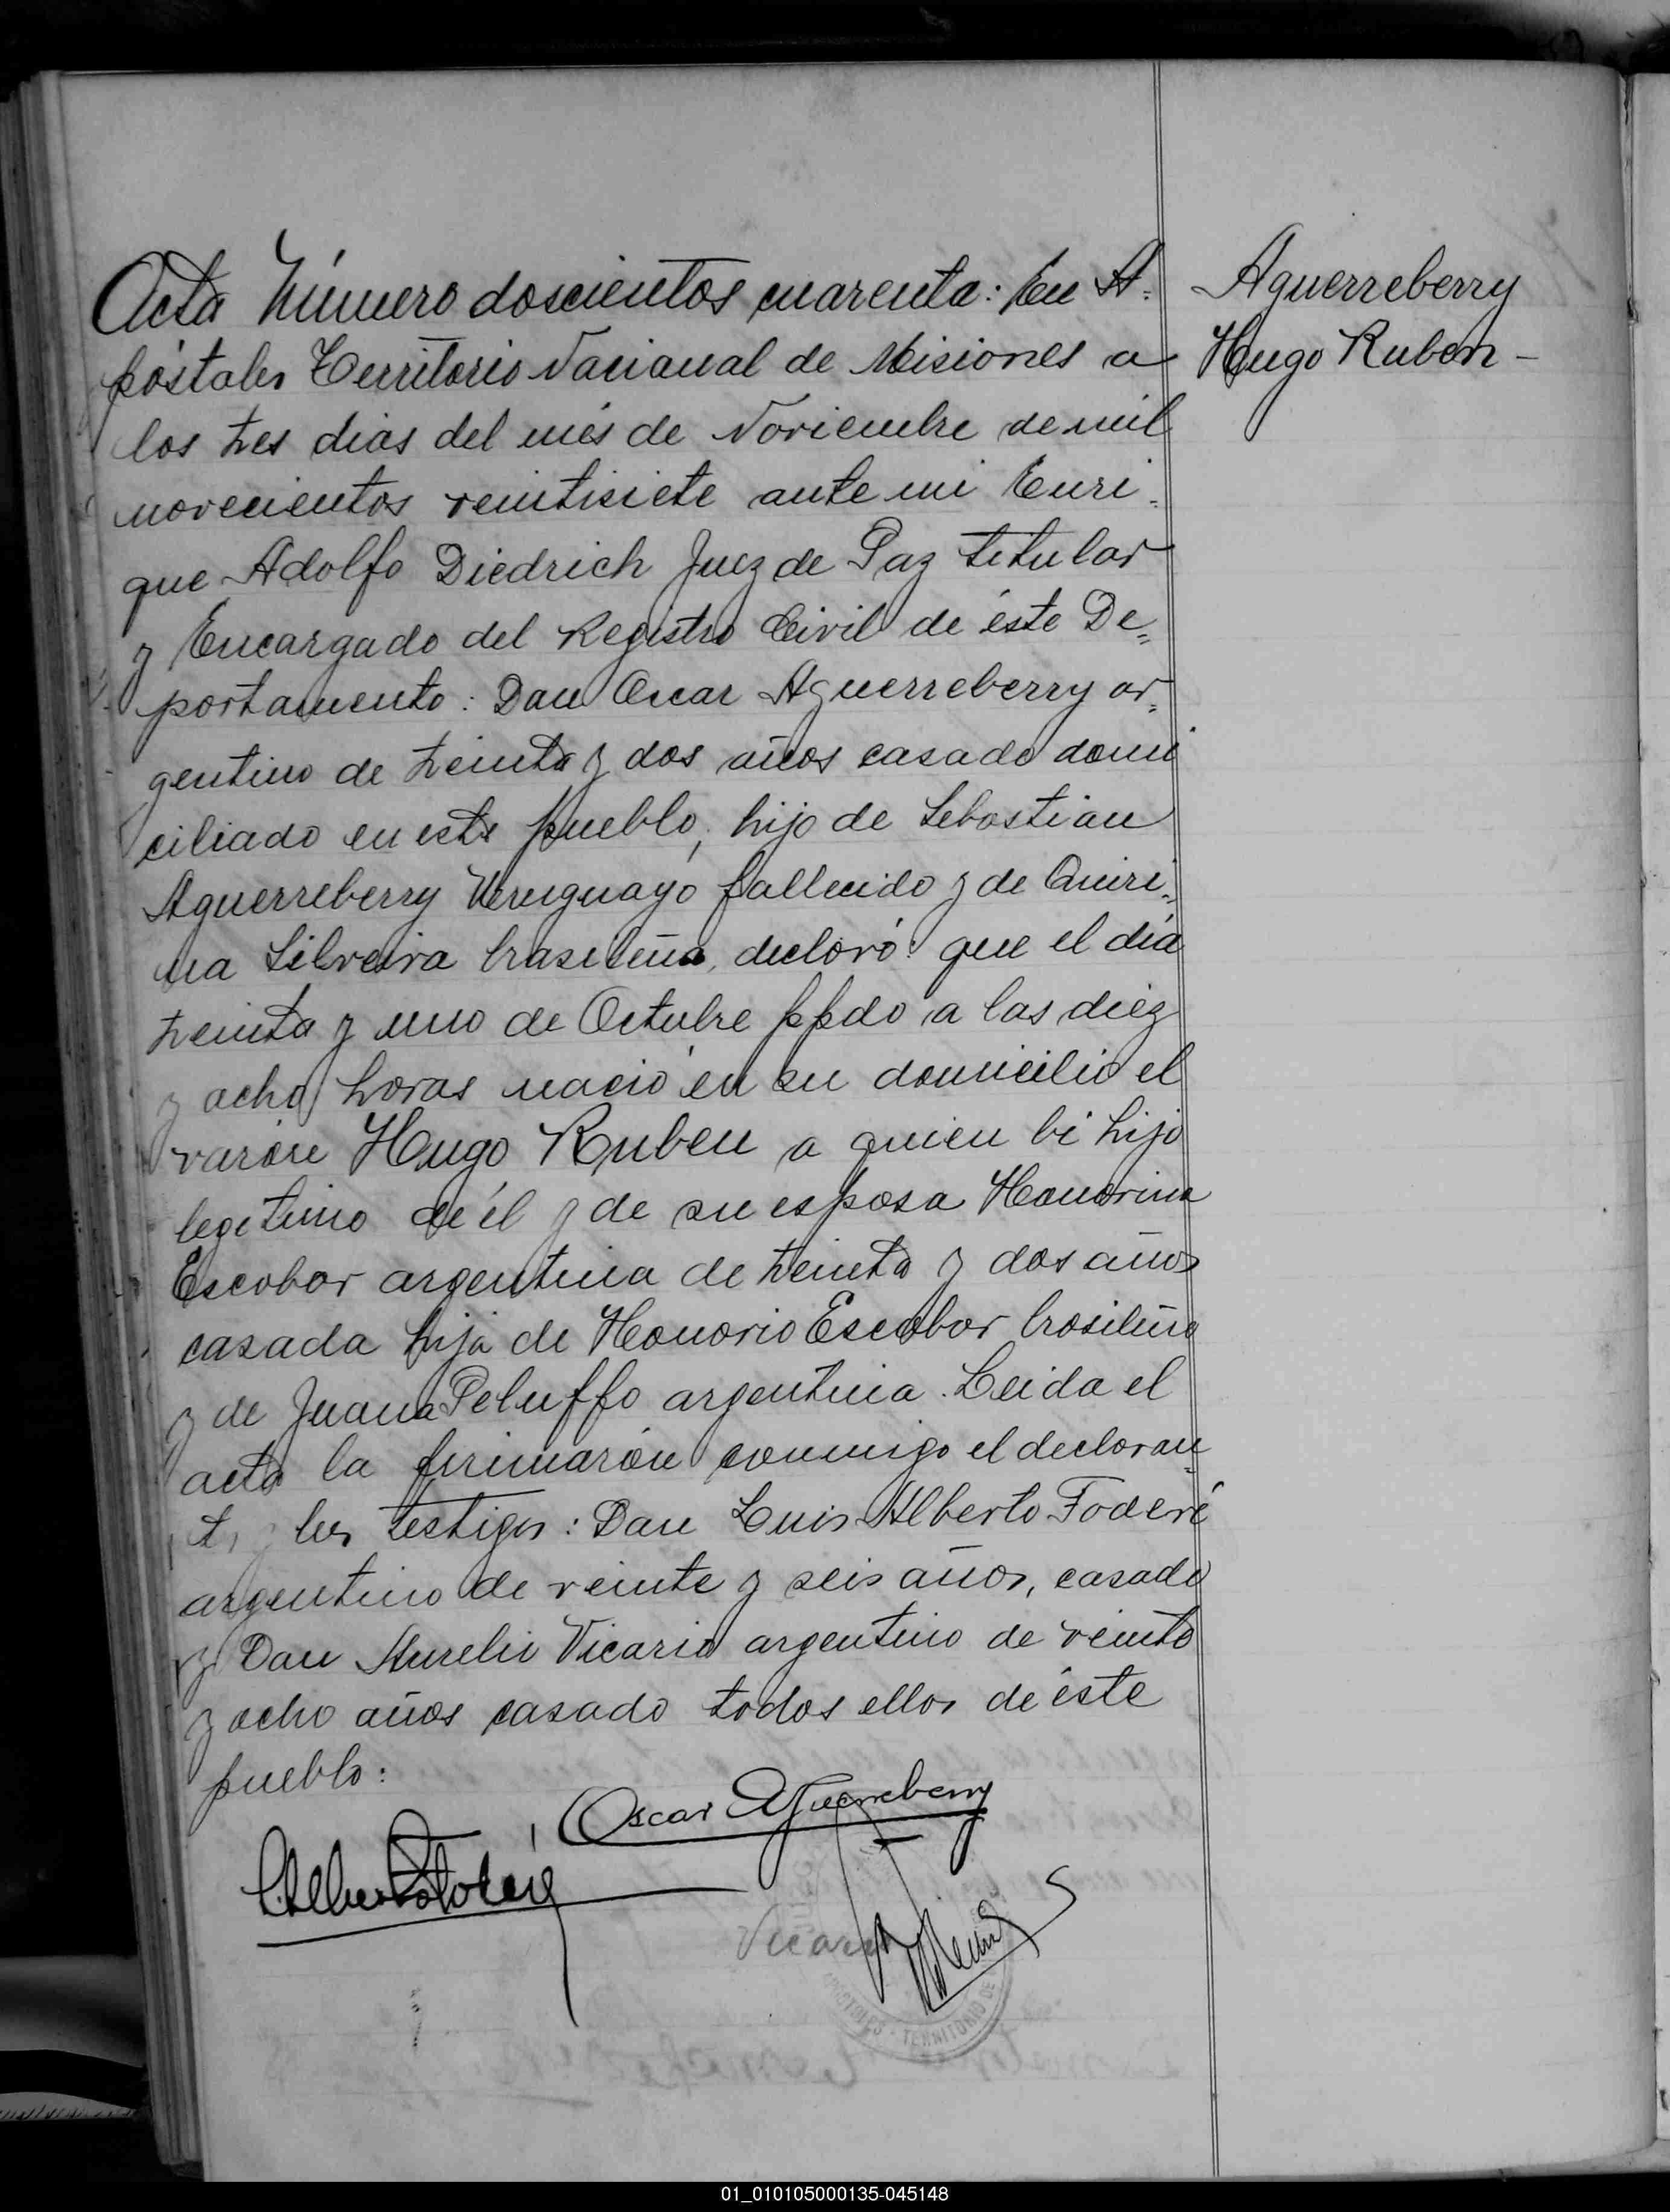 Acta Número doscientos cuarenta: En A=
póstoles Territorio Nacional de Misiones a
los tres dias del més de Noviembre de mil
novecientos veintisiete ante mi Enri=
que Adolfo Diedrich Juez de Paz titular
y Encargado del Registro Civil de éste De=
partamento: Don Oscar Aguerreberry ar=
gentino de treinta y dos años casado domi
ciliado en este pueblo, hijo de Sebastian
Aguerreberry Uruguayo fallecido y de Quiri=
na Silveira brasileña, declaró: que el día
treinta y uno de Octubre ppdo a las diez
y ocho horas nació en su domicilio el
varón Hugo Ruben a quien bi hijo
legitimo de él y de su esposa Honorina
Escobar argentina de treinta y dos años
casada hija de Honorio Escobar brasileño
y de Juana Peluffo argentina. Leida el
acta la firmarón conmigo el declaran=
te y los testigos: Don Luis Alberto Foderé
argentino de veinte y seis años, casado
y Don Aurelio Vicario argentino de veinte
y ocho años casado todos ellos de éste
pueblo:
Aguerreberry
Hugo Ruben -
Oscar Aguerreberry
Vicario
APOSTOLES - TERRITORIO DE
01_010105000135-045148